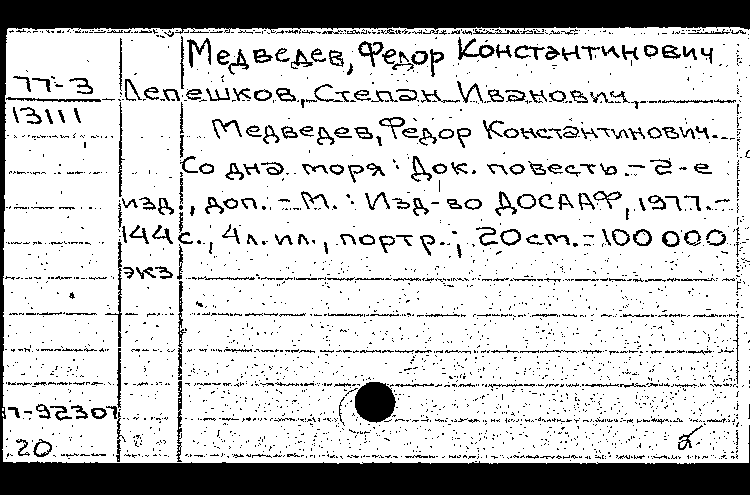 Медведев, Федор Константинович
77-3 Лепешков, Степан Иванович,
13111 Медведев, Федор Константинович.
Со дна моря : Док. повесть. - 2-е
изд., доп. - М. : Изд-во ДОСААФ, 1977. -
144 с., 4 л. ил., портр. ; 20 cm. - 100 000
экз.
-92307
20 2